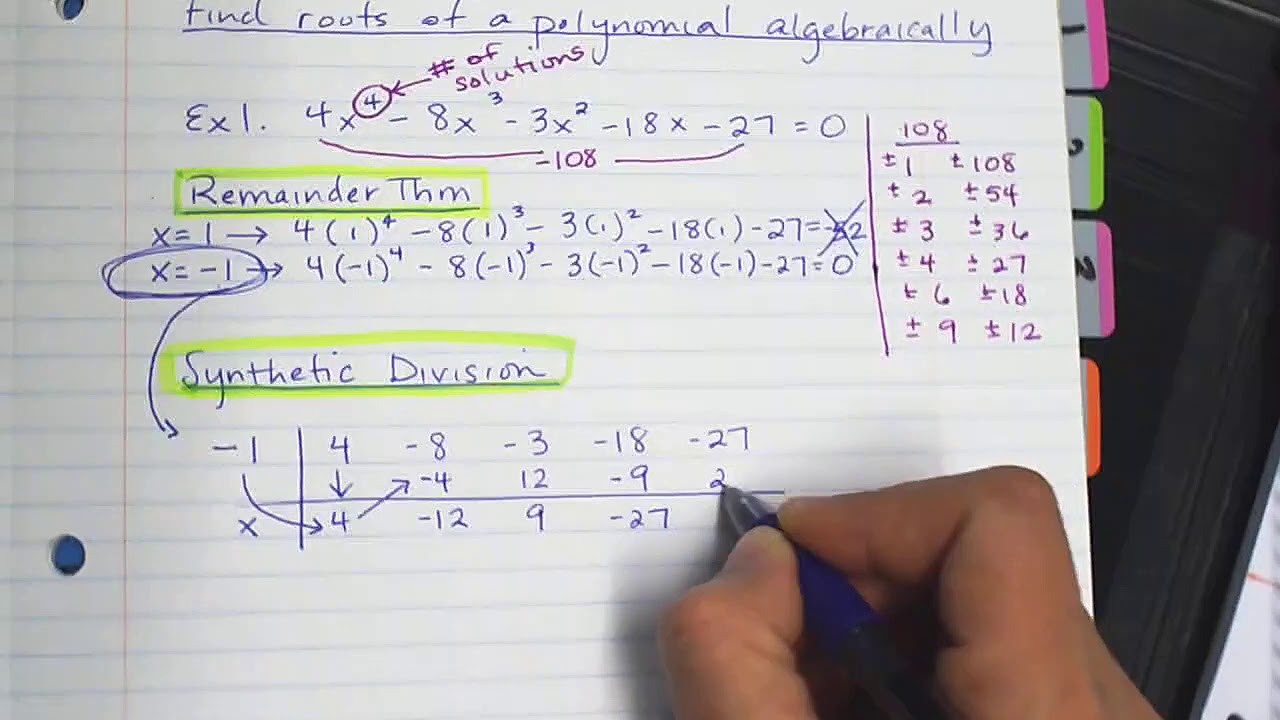 Find roots of a polynomial algebraically
# of
solutions
Ex 1. 4x⁴ - 8x³ - 3x² - 18x - 27 = 0
-108
Remainder Thm
x = 1 → 4(1)⁴ - 8(1)³ - 3(1)² - 18(1) - 27 =
x = -1 → 4(-1)⁴ - 8(-1)³ - 3(-1)² - 18(-1) - 27 = 0
108
± 1 ± 108
± 2 ± 54
± 3 ± 36
± 4 ± 27
± 6 ± 18
± 9 ± 12
Synthetic Division
-1 | 4 -8 -3 -18 -27
↓ -4 12 -9 2
x 4 -12 9 -27
1
2
3